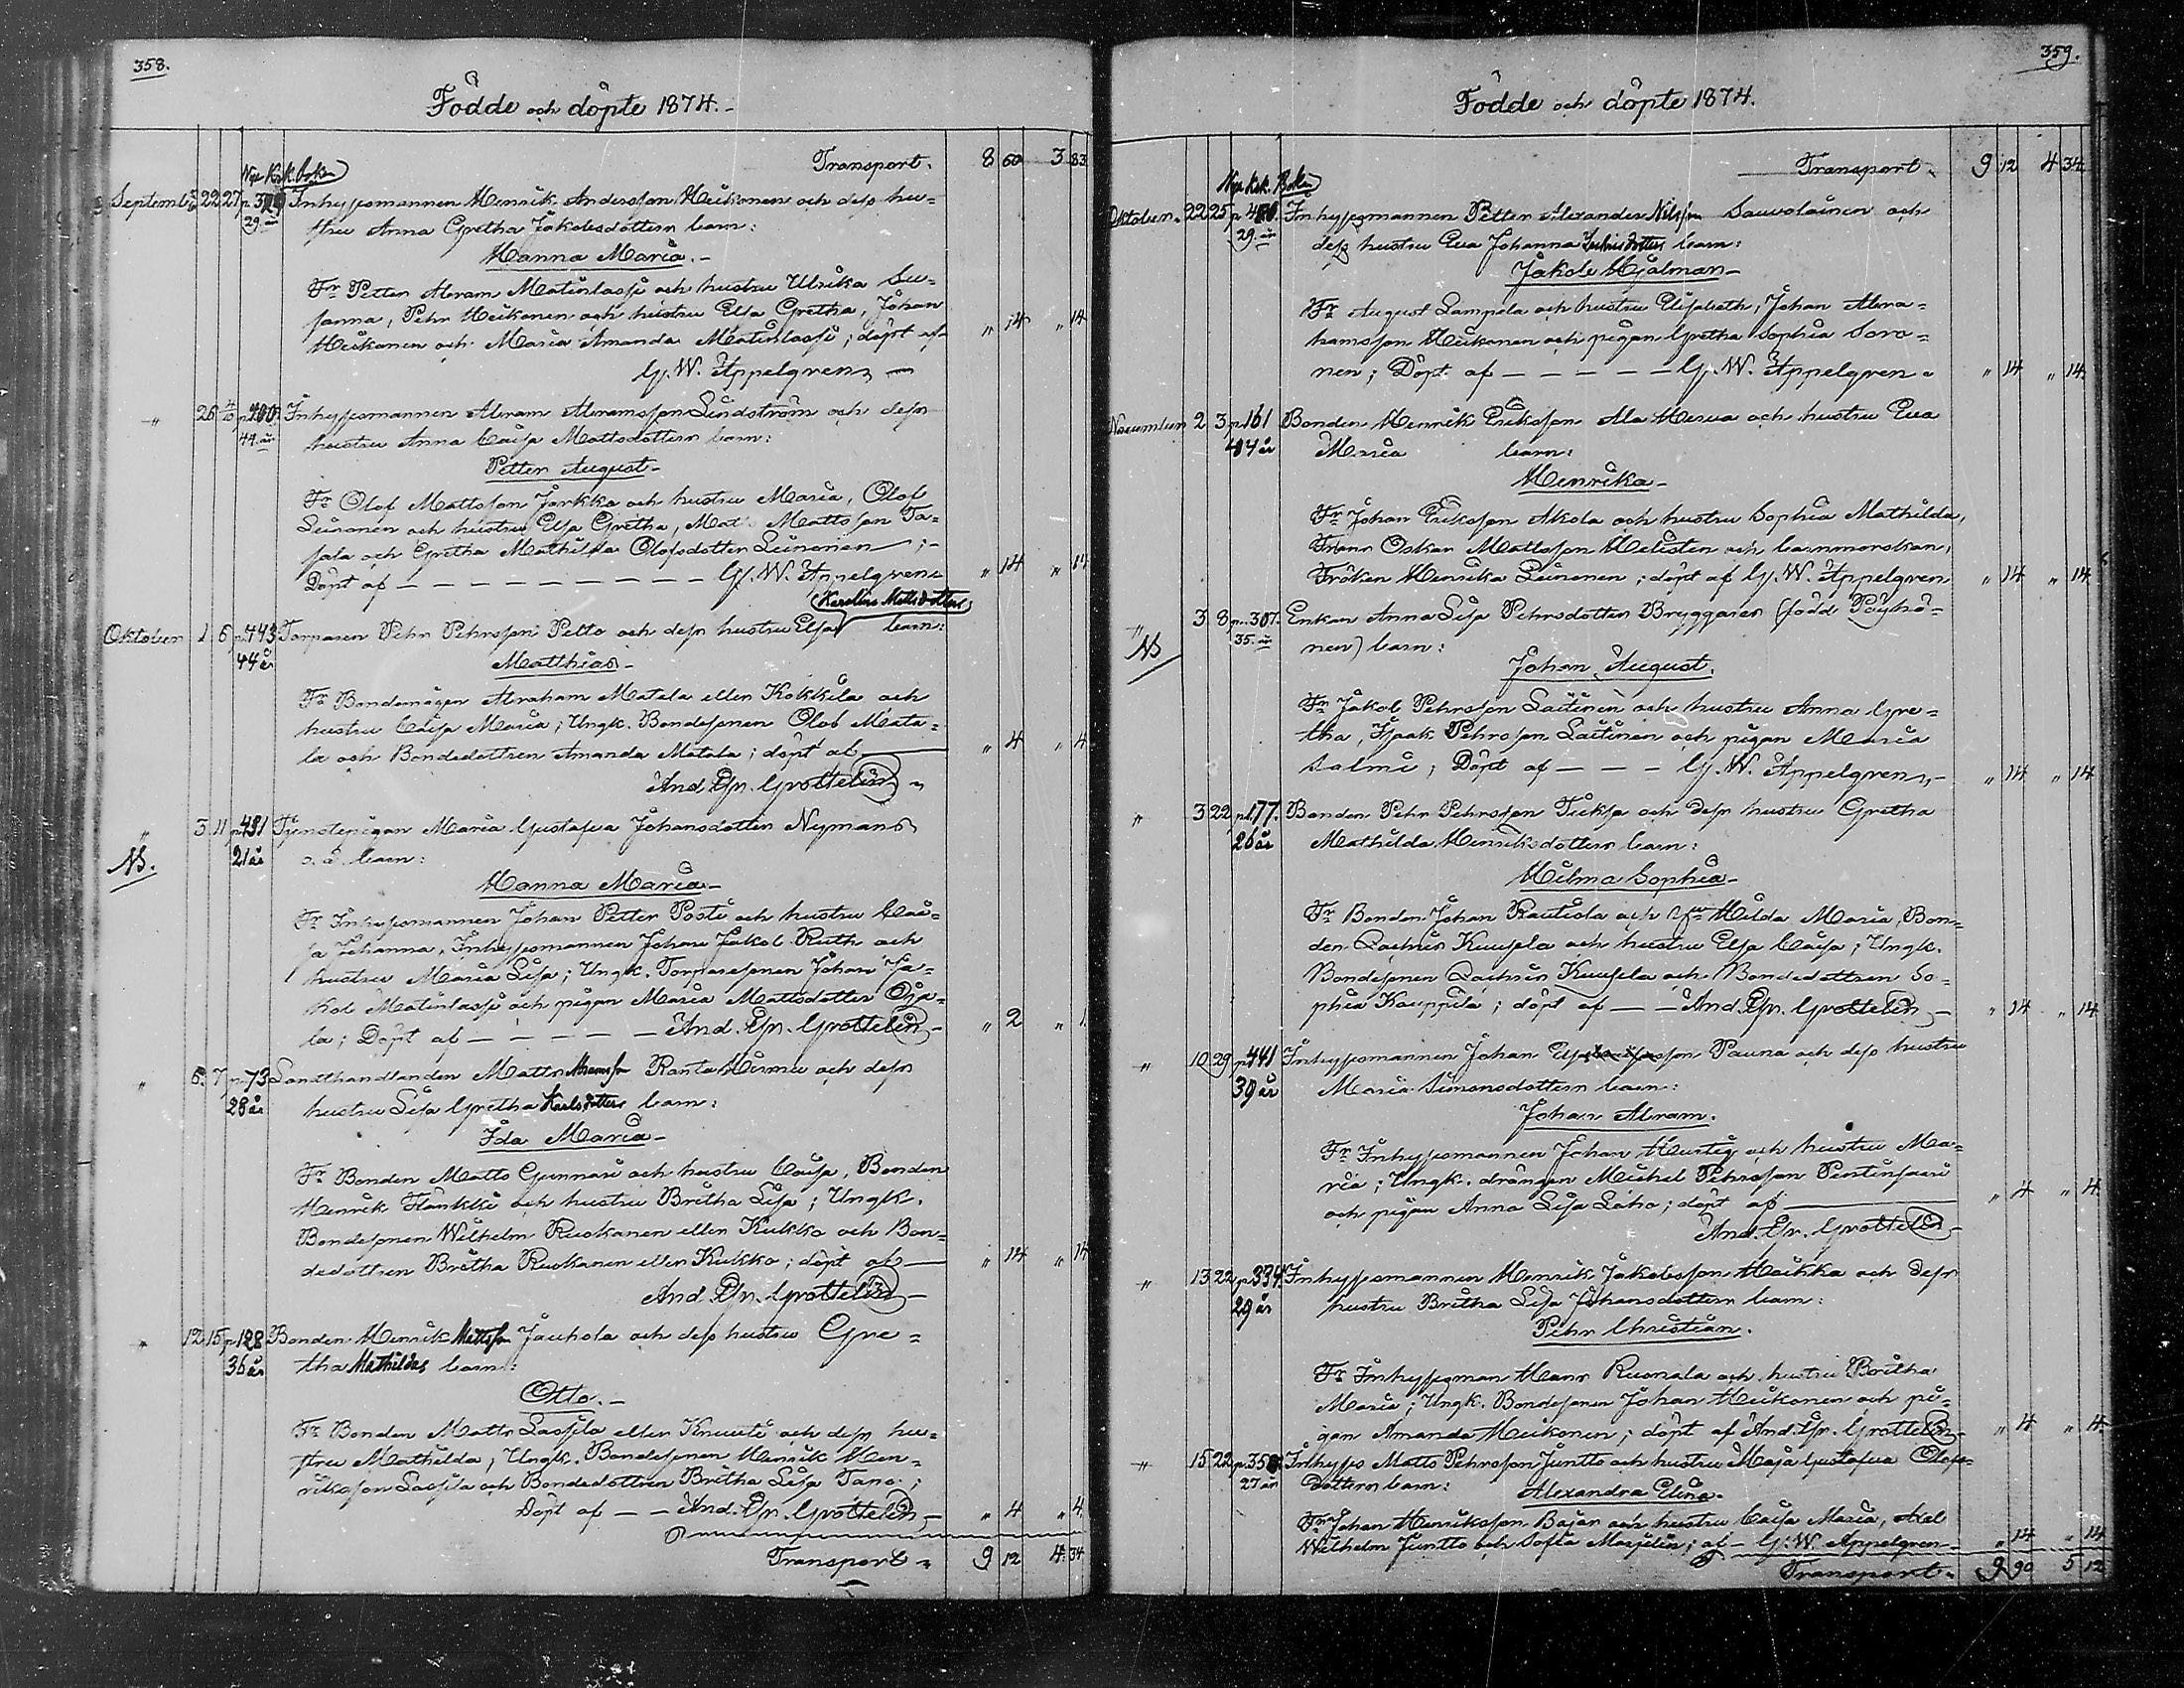 358.
Födde och döpte 1874.
Nya Kyrk. boken
Transport. 8 60 3 83
September 22 27 p. Inhysesmannen Henrik Andersson Heikonen och dess hu=
29 år stru Anna Gretha Jakobsdotters barn:
Hanna Maria.
Fr Petter Abram Matinlassi och hustru Ulrika Su=
sanna, Pehr Heikonen och hustru Elsa Gretha, Johan
Heikonen och Maria Amanda Matinlassi; döpt af „ 14 „ 14
G. W. Appelgren
„ 26 4/10 p. 400. Inhysesmannen Abram Abramsson Lindström och dess
44 år hustru Anna Caisa Mattsdotters barn:
Petter August
Fr Olof Mattsson Jarkko och hustru Maria, Olof
Leinonen och hustru Elsa Gretha, Matts Mattsson Ta=
pala och Gretha Mathilda Olofsdotter Leinonen;
Döpt af — — — G. W. Appelgren „ 14 „ 14
(Karolina Mattsdotter)
Oktober 1 6 p. 443 Torparen Pehr Pehrsson Pelto och dess hustru Elsa barn:
44 år
Matthias
Fr Bondemågen Abraham Matala eller Kokkila och
hustru Caisa Maria; Ungk. Bondesonen Olof Mata=
la och Bondedottren Amanda Matala; döpt af — „ 4 „ 4
And. Gr. Grottelin
„ 3 11 p. 431 Tjenstepigan Maria Gustafva Johansdotter Nymans
NB. 21 år o. ä. barn:
Hanna Maria
Fr Inhysesmannen Johan Petter Posti och hustru Cai=
sa Johanna, Inhysesmannen Johan Jakob Ruth och
hustru Maria Lisa; Ungk. Torparesonen Johan Ja=
kob Matinlassi och pigan Maria Mattsdotter Oja=
la; Döpt af — — — And. Gr. Grottelin „ 2 „ 1
„ 6 7 p. 73 Landthandlanden Matts Abramsson Ranta Hirmu och dess
28 år hustru Lisa Gretha Karlsdotters barn:
Ida Maria
Fr Bonden Matts Gunnari och hustru Caisa, Bonden
Henrik Flankki och hustru Britha Lisa; Ungk.
Bondesonen Wilhelm Ruokanen eller Kukko och Bon=
dedottren Britha Ruokanen eller Kukko; döpt af — „ 14 „ 14
And. Gr. Grottelin
„ 12 15 p. 128 Bonden Henrik Mattsson Jauhola och dess hustru Gre=
36 år tha Mathildas barn:
Otto.
Fr Bonden Matts Lassila eller Knuuti och dess hu=
stru Mathilda; Ungk. Bondesonen Henrik Hen=
riksson Lassila och Bondedottren Britha Lisa Tano;
Döpt af — — And. Gr. Grottelin „ 4 „ 4
Transport 9 12 4 34
359.
Födde och döpte 1874.
Nya Kyrk. Boken
Transport 9 12 4 34
Oktober 22 25 p. Inhysesmannen Petter Alexander Nilsson Sauvolainen och
29 år dess hustru Eva Johanna barn:
Jakob Hjalmar
Fr August Lampela och hustru Elisabeth, Johan Abra=
hamsson Heikonen och pigan Gretha Sophia Soro=
nen; Döpt af — — — G. W. Appelgren „ 14 „ 14
November 2 3 p. 161 Bonden Henrik Eriksson Ala Herva och hustru Eva
44 år Maria barn:
Henrika
Fr Johan Eriksson Akola och hustru Sophia Mathilda,
Frans Oskar Mattsson Helisten och barnmorskan,
Fröken Henrika Leinonen; döpt af G. W. Appelgren „ 14 „ 14
„ 3 8 p. 307. Enkan Anna Lisa Pehrsdotter Bryggares (född Pöyhö=
NB 35 år nen) barn:
Johan August.
Fr Jakob Pehrsson Laitinen och hustru Anna Gre=
tha, Isaak Pehrsson Laitinen och pigan Maria
Salmi; Döpt af — — — G. W. Appelgren „ 14 „ 14
„ 3 22 p. 177. Bonden Pehr Pehrsson Tiiksa och dess hustru Gretha
26 år Mathilda Henriksdotters barn:
Hilma Sophia
Fr Bonden Johan Rautiola och hu Hilda Maria, Bon=
den Zachris Kuusela och hustru Elsa Caisa; Ungk.
Bondesonen Zachris Kuusela och Bondedottren So=
phia Kauppila; döpt af — — And. Gr. Grottelin „ 14 „ 14
„ 10 29 p. 441 Inhysesmannen Johan Pauna och dess hustru
39 år Maria Simonsdotters barn:
Johan Abram.
Fr Inhysesmannen Johan Hurtig och hustru Ma=
ria; Ungk. drängen Michel Pehrsson Pentinsaari
och pigan Anna Lisa Laho; döpt af — „ 4 „ 4
And. Gr. Grottelin
„ 13 22 p. 334 Inhysesmannen Henrik Jakobsson Haikka och dess
29 år hustru Britha Lisa Johansdotters barn:
Pehr Christian.
Fr Inhysesman Hans Ruonala och hustru Britha
Maria; Ungk. Bondesonen Johan Heikonen och pi=
gan Amanda Heikonen; döpt af And. Gr. Grottelin „ 4 „ 4
„ 15 22 p. Inhyses Matts Pehrsson Juntto och hustru Maja Gustafva Olofs=
27 år dotters barn: Alexandra Elina.
Fr Johan Henriksson Bajar och hustru Caisa Maria, Axel
Wilhelm Juntto och Sofia Marjelin; af — G. W. Appelgren „ 14 „ 14
Transport 9 90 5 12